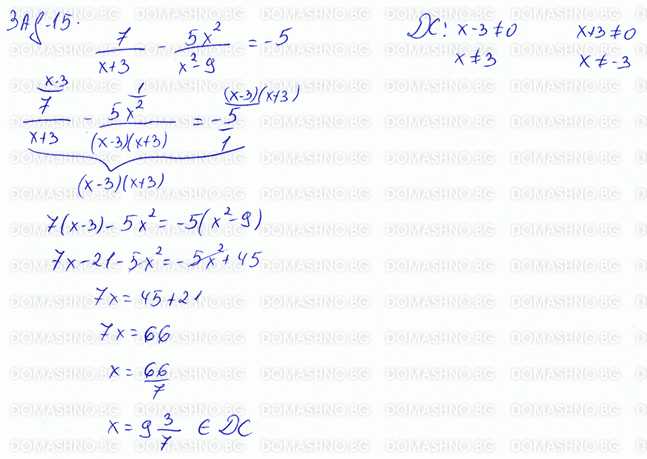 Зад.15.
7/(x+3) - 5x²/(x²-9) = -5
ДС: x-3≠0 x+3≠0
x≠3 x≠-3
x-3 1 (x-3)(x+3)
7/(x+3) - 5x²/((x-3)(x+3)) = -5/1
(x-3)(x+3)
7(x-3) - 5x² = -5(x²-9)
7x-21-5x² = -5x²+45
7x = 45+21
7x = 66
x = 66/7
x = 9 3/7 ∈ ДС
DOMASHNO.BG